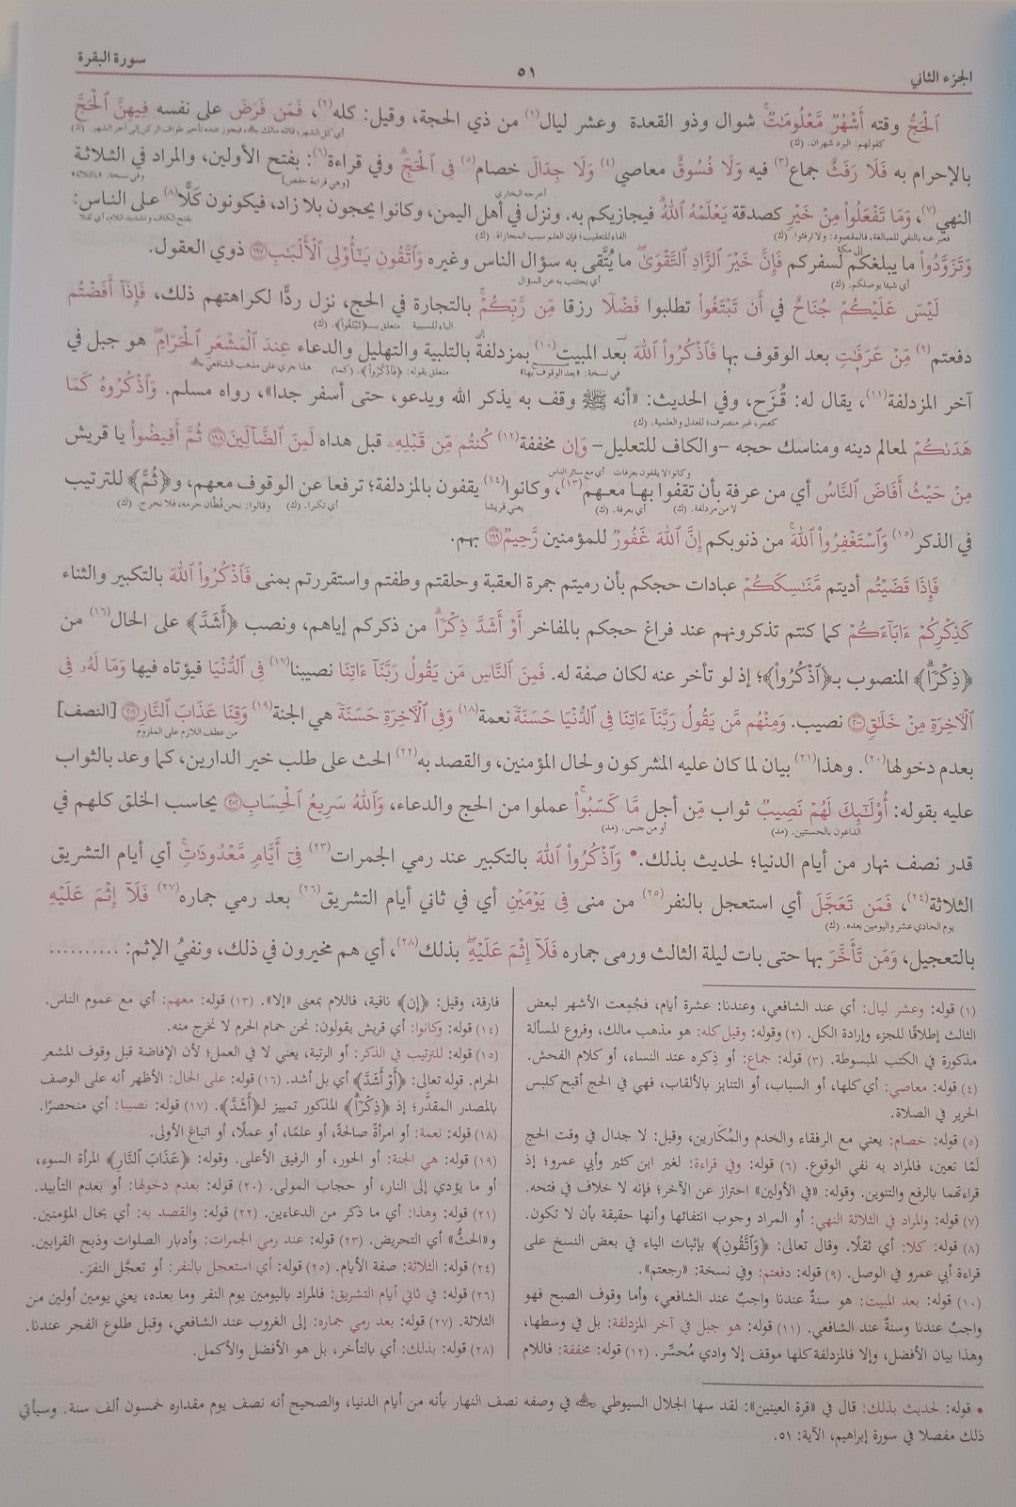 الجزء الثاني
٥١
سورة البقرة
ٱلْحَجُّ وقته أَشْهُرٌ مَّعْلُومَٰتٌ شوال وذو القعدة وعشر ليال(١) من ذي الحجة، وقيل: كله(٢)، فَمَن فَرَضَ على نفسه فِيهِنَّ ٱلْحَجَّ
كقولهم: البرد شهران. (ك)
أي كل الشهر، قاله مالك، فيجوز عنده تأخير طواف الركن إلى آخر الشهر. (ك)
بالإحرام به فَلَا رَفَثَ جماع(٣) فيه وَلَا فُسُوقَ معاصي(٤) وَلَا جِدَالَ خصام(٥) فِى ٱلْحَجِّ وفي قراءة(٦): بفتح الأولين، والمراد في الثلاثة
(وهي قراءة حفص)
وفي نسخة: «بالثلاثة»
النهي(٧)، وَمَا تَفْعَلُوا۟ مِنْ خَيْرٍ كصدقة يَعْلَمْهُ ٱللَّهُ فيجازيكم به. ونزل في أهل اليمن، وكانوا يحجون بلا زاد، فيكونون كَلًّا(٨) على الناس:
أخرجه البخاري
فعبر عنه بالنفي للمبالغة، فالمقصود: ولا ترفثوا. (ك)
الفاء للتعقيب؛ فإن العلم سبب المجازاة. (ك)
بفتح الكاف وتشديد اللام، أي ثقلا
وَتَزَوَّدُوا۟ ما يبلغكم لسفركم فَإِنَّ خَيْرَ ٱلزَّادِ ٱلتَّقْوَىٰ ما يُتَّقى به سؤال الناس وغيره وَٱتَّقُونِ يَٰٓأُو۟لِى ٱلْأَلْبَٰبِ ١٩٧ ذوي العقول.
إلى مكة
أي شيئا يوصلكم. (ك)
أي يجتنب به عن السؤال
لَيْسَ عَلَيْكُمْ جُنَاحٌ في أَن تَبْتَغُوا۟ تطلبوا فَضْلًا رزقا مِّن رَّبِّكُمْ بالتجارة في الحج، نزل ردًّا لكراهتهم ذلك، فَإِذَآ أَفَضْتُم
الباء للسببية
متعلق بـ﴿تبتغوا﴾. (ك)
دفعتم(٩) مِّنْ عَرَفَٰتٍ بعد الوقوف بها فَٱذْكُرُوا۟ ٱللَّهَ بعد المبيت(١٠) بمزدلفة بالتلبية والتهليل والدعاء عِندَ ٱلْمَشْعَرِ ٱلْحَرَامِ هو جبل في
إلى
في نسخة: «بعد الوقوف بها»
متعلق بقوله: ﴿فاذكروا﴾. (كما)
هذا جري على مذهب الشافعي
آخر المزدلفة(١١)، يقال له: قُزَح، وفي الحديث: «أنه ﷺ وقف به يذكر الله ويدعو، حتى أسفر جدا»، رواه مسلم. وَٱذْكُرُوهُ كَمَا
كعمر، غير منصرف؛ للعدل والعلمية. (ك)
هَدَىٰكُمْ لمعالم دينه ومناسك حجه –والكاف للتعليل– وَإِن مخففة(١٢) كُنتُم مِّن قَبْلِهِۦ قبل هداه لَمِنَ ٱلضَّآلِّينَ ١٩٨ ثُمَّ أَفِيضُوا۟ يا قريش
مِنْ حَيْثُ أَفَاضَ ٱلنَّاسُ أي من عرفة بأن تقفوا بها معهم(١٣)، وكانوا(١٤) يقفون بالمزدلفة؛ ترفعا عن الوقوف معهم، و﴿ثُمَّ﴾ للترتيب
وكانوا لا يقفون بعرفات
أي مع سائر الناس
لا من مزدلفة. (ك)
أي بعرفة. (ك)
يعني قريشا
أي تكبرا. (ك)
وقالوا: نحن قُطَّان حرمه، فلا نخرج. (ك)
في الذكر(١٥) وَٱسْتَغْفِرُوا۟ ٱللَّهَ من ذنوبكم إِنَّ ٱللَّهَ غَفُورٌ للمؤمنين رَّحِيمٌ ١٩٩ بهم.
فَإِذَا قَضَيْتُم أديتم مَّنَٰسِكَكُمْ عبادات حجكم بأن رميتم جمرة العقبة وحلقتم وطفتم واستقررتم بمنى فَٱذْكُرُوا۟ ٱللَّهَ بالتكبير والثناء
كَذِكْرِكُمْ ءَابَآءَكُمْ كما كنتم تذكرونهم عند فراغ حجكم بالمفاخر أَوْ أَشَدَّ ذِكْرًا من ذكركم إياهم، ونصب ﴿أَشَدَّ﴾ على الحال(١٦) من
﴿ذِكْرًا﴾ المنصوب بـ﴿ٱذْكُرُوا۟﴾؛ إذ لو تأخر عنه لكان صفة له. فَمِنَ ٱلنَّاسِ مَن يَقُولُ رَبَّنَآ ءَاتِنَا نصيبنا(١٧) فِى ٱلدُّنْيَا فيؤتاه فيها وَمَا لَهُۥ فِى
ٱلْـَٔاخِرَةِ مِنْ خَلَٰقٍ ٢٠٠ نصيب. وَمِنْهُم مَّن يَقُولُ رَبَّنَآ ءَاتِنَا فِى ٱلدُّنْيَا حَسَنَةً نعمة(١٨) وَفِى ٱلْـَٔاخِرَةِ حَسَنَةً هي الجنة(١٩) وَقِنَا عَذَابَ ٱلنَّارِ ٢٠١ [النصف]
من عطف اللازم على الملزوم
بعدم دخولها(٢٠). وهذا(٢١) بيان لما كان عليه المشركون ولحال المؤمنين، والقصد به(٢٢) الحث على طلب خير الدارين، كما وعد بالثواب
عليه بقوله: أُو۟لَٰٓئِكَ لَهُمْ نَصِيبٌ ثواب مِّن أجل مَّا كَسَبُوا۟ عملوا من الحج والدعاء، وَٱللَّهُ سَرِيعُ ٱلْحِسَابِ ٢٠٢ يحاسب الخلق كلهم في
الداعون بالحسنتين. (مد)
أو من جنس. (مد)
قدر نصف نهار من أيام الدنيا؛ لحديث بذلك.• وَٱذْكُرُوا۟ ٱللَّهَ بالتكبير عند رمي الجمرات(٢٣) فِىٓ أَيَّامٍ مَّعْدُودَٰتٍ أي أيام التشريق
الثلاثة(٢٤)، فَمَن تَعَجَّلَ أي استعجل بالنفر(٢٥) من منى فِى يَوْمَيْنِ أي في ثاني أيام التشريق(٢٦) بعد رمي جماره(٢٧) فَلَآ إِثْمَ عَلَيْهِ
يوم الحادي عشر واليومين بعده. (ك)
بالتعجيل، وَمَن تَأَخَّرَ بها حتى بات ليلة الثالث ورمى جماره فَلَآ إِثْمَ عَلَيْهِ بذلك(٢٨)، أي هم مخيرون في ذلك، ونفيُ الإثم: ..........
(١) قوله: وعشر ليال: أي عند الشافعي، وعندنا: عشرة أيام، فجُمعت الأشهر لبعض
الثالث إطلاقًا للجزء وإرادة الكل. (٢) وقوله: وقيل كله: هو مذهب مالك، وفروع المسألة
مذكورة في الكتب المبسوطة. (٣) قوله: جماع: أو ذكره عند النساء، أو كلام الفحش.
(٤) قوله: معاصي: أي كلها، أو السباب، أو التنابز بالألقاب، فهي في الحج أقبح كلبس
الحرير في الصلاة.
(٥) قوله: خصام: يعني مع الرفقاء والخدم والمُكَارين، وقيل: لا جدال في وقت الحج
لَمّا تعين، فالمراد به نفي الوقوع. (٦) قوله: وفي قراءة: لغير ابن كثير وأبي عمرو؛ إذ
قراءتهما بالرفع والتنوين. وقوله: «في الأولين» احتراز عن الآخر؛ فإنه لا خلاف في فتحه.
(٧) قوله: والمراد في الثلاثة النهي: أو المراد وجوب انتفائها وأنها حقيقة بأن لا تكون.
(٨) قوله: كلا: أي ثقلًا. وقال تعالى: ﴿وَٱتَّقُونِ﴾ بإثبات الياء في بعض النسخ على
قراءة أبي عمرو في الوصل. (٩) قوله: دفعتم: وفي نسخة: «رجعتم».
(١٠) قوله: بعد المبيت: هو سنةٌ عندنا واجبٌ عند الشافعي، وأما وقوف الصبح فهو
واجبٌ عندنا وسنةٌ عند الشافعي. (١١) قوله: هو جبل في آخر المزدلفة: بل في وسطها،
وهذا بيان الأفضل، وإلا فالمزدلفة كلها موقف إلا وادي مُحسِّر. (١٢) قوله: مخففة: فاللام
فارقة، وقيل: ﴿إن﴾ نافية، فاللام بمعنى «إلا». (١٣) قوله: معهم: أي مع عموم الناس.
(١٤) قوله: وكانوا: أي قريش يقولون: نحن حمام الحرم لا نخرج منه.
(١٥) قوله: للترتيب في الذكر: أو الرتبة، يعني لا في العمل؛ لأن الإفاضة قبل وقوف المشعر
الحرام. قوله تعالى: ﴿أَوْ أَشَدَّ﴾ أي بل أشد. (١٦) قوله: على الحال: الأظهر أنه على الوصف
بالمصدر المقدَّر؛ إذ ﴿ذِكْرًا﴾ المذكور تمييز لـ﴿أَشَدَّ﴾. (١٧) قوله: نصيبا: أي منحصرًا.
(١٨) قوله: نعمة: أو امرأةً صالحةً، أو علمًا، أو عملًا، أو اتباع الأولى.
(١٩) قوله: هي الجنة: أو الحور، أو الرفيق الأعلى. وقوله: ﴿عَذَابَ ٱلنَّارِ﴾ المرأة السوء،
أو ما يؤدي إلى النار، أو حجاب المولى. (٢٠) قوله: بعدم دخولها: أو بعدم التأبيد.
(٢١) قوله: وهذا: أي ما ذكر من الدعاءين. (٢٢) قوله: والقصد به: أي بحال المؤمنين.
و«الحثُّ» أي التحريض. (٢٣) قوله: عند رمي الجمرات: وأدبار الصلوات وذبح القرابين.
(٢٤) قوله: الثلاثة: صفة الأيام. (٢٥) قوله: أي استعجل بالنفر: أو تعجَّل النفرَ.
(٢٦) قوله: في ثاني أيام التشريق: فالمراد باليومين يوم النفر وما بعده، يعني يومين أولين من
الثلاثة. (٢٧) قوله: بعد رمي جماره: إلى الغروب عند الشافعي، وقبل طلوع الفجر عندنا.
(٢٨) قوله: بذلك: أي بالتأخر، بل هو الأفضل والأكمل.
• قوله: لحديث بذلك: قال في «قرة العينين»: لقد سها الجلال السيوطي في وصفه نصف النهار بأنه من أيام الدنيا، والصحيح أنه نصف يوم مقداره خمسون ألف سنة. وسيأتي
ذلك مفصلا في سورة إبراهيم، الآية: ٥١.